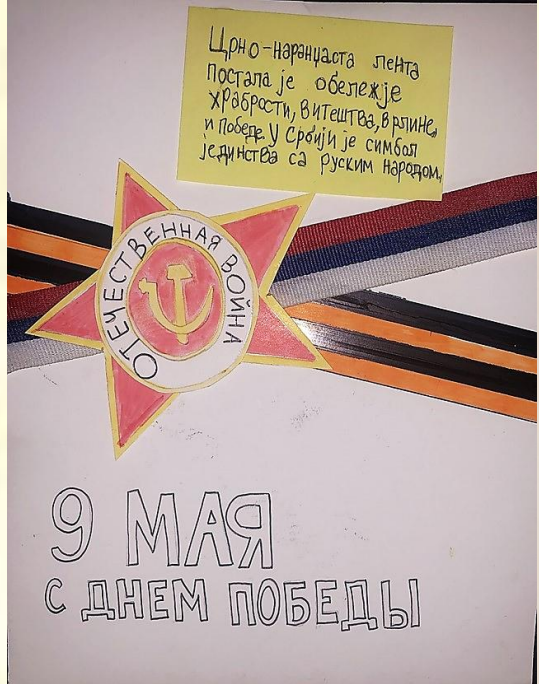 Црно-наранџаста лента
постала је обележје
храбрости, витештва, врлине,
и победе. У Србији је симбол
јединства са руским народом.
ОТЕЧЕСТВЕННАЯ ВОЙНА
9 МАЯ
С ДНЕМ ПОБЕДЫ